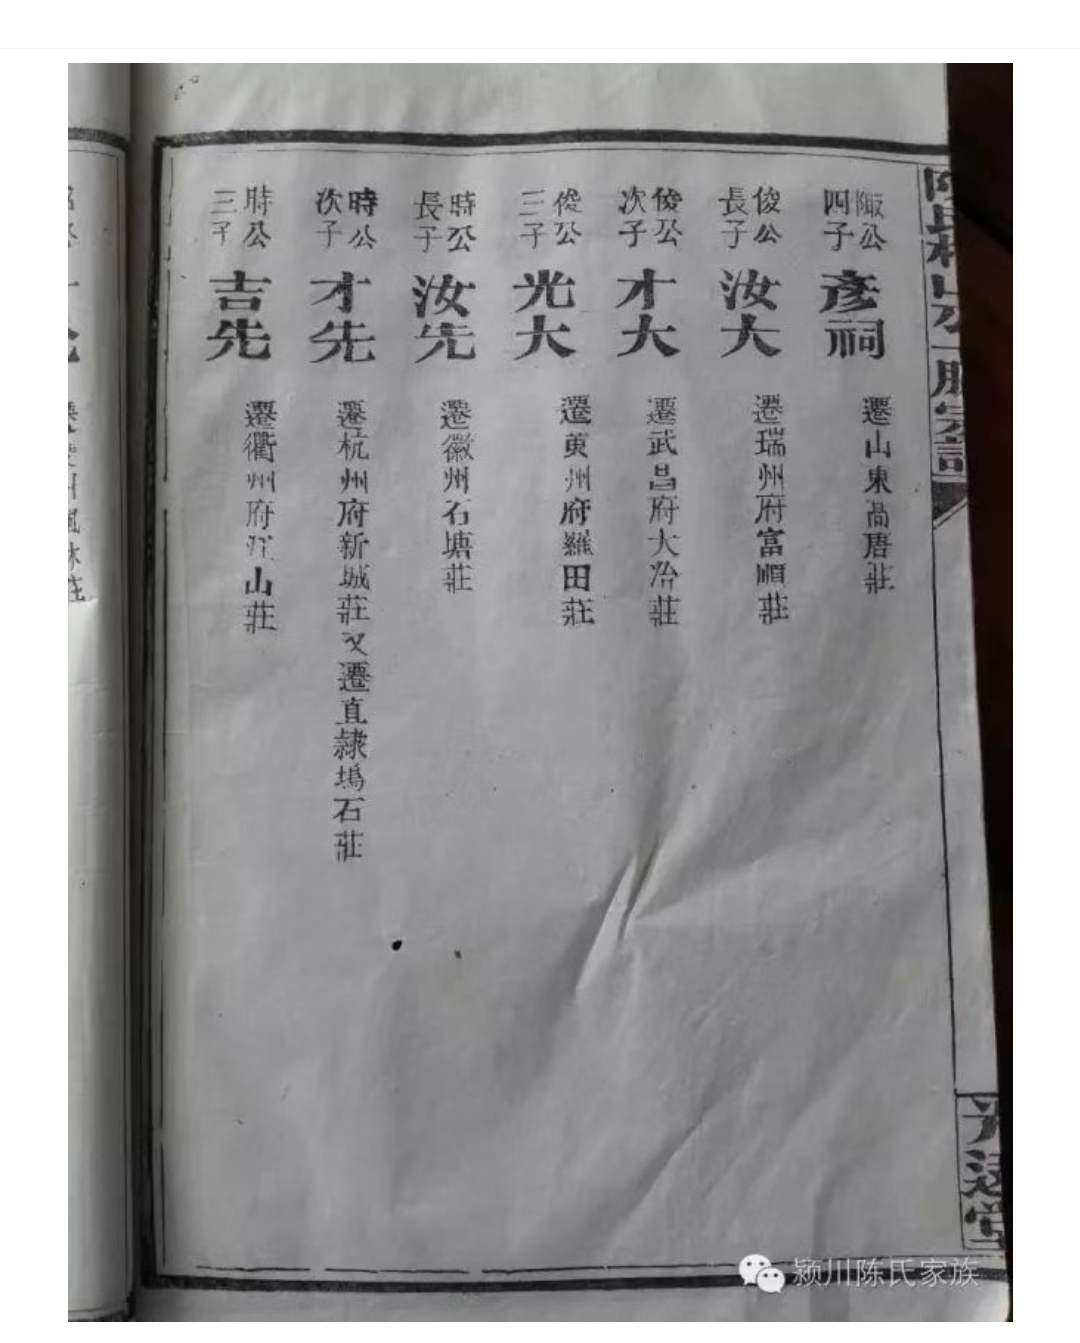 陬公
四子
彥祠
遷山東高唐莊
俊公
長子
汝大
遷瑞州府富順莊
俊公
次子
才大
遷武昌府大冶莊
俊公
三子
光大
遷黄州府羅田莊
時公
長子
汝先
遷徽州石塘莊
時公
次子
才先
遷杭州府新城莊又遷直隸塢石莊
時公
三子
吉先
遷衢州府山莊
宗譜
堂
颍川陈氏家族